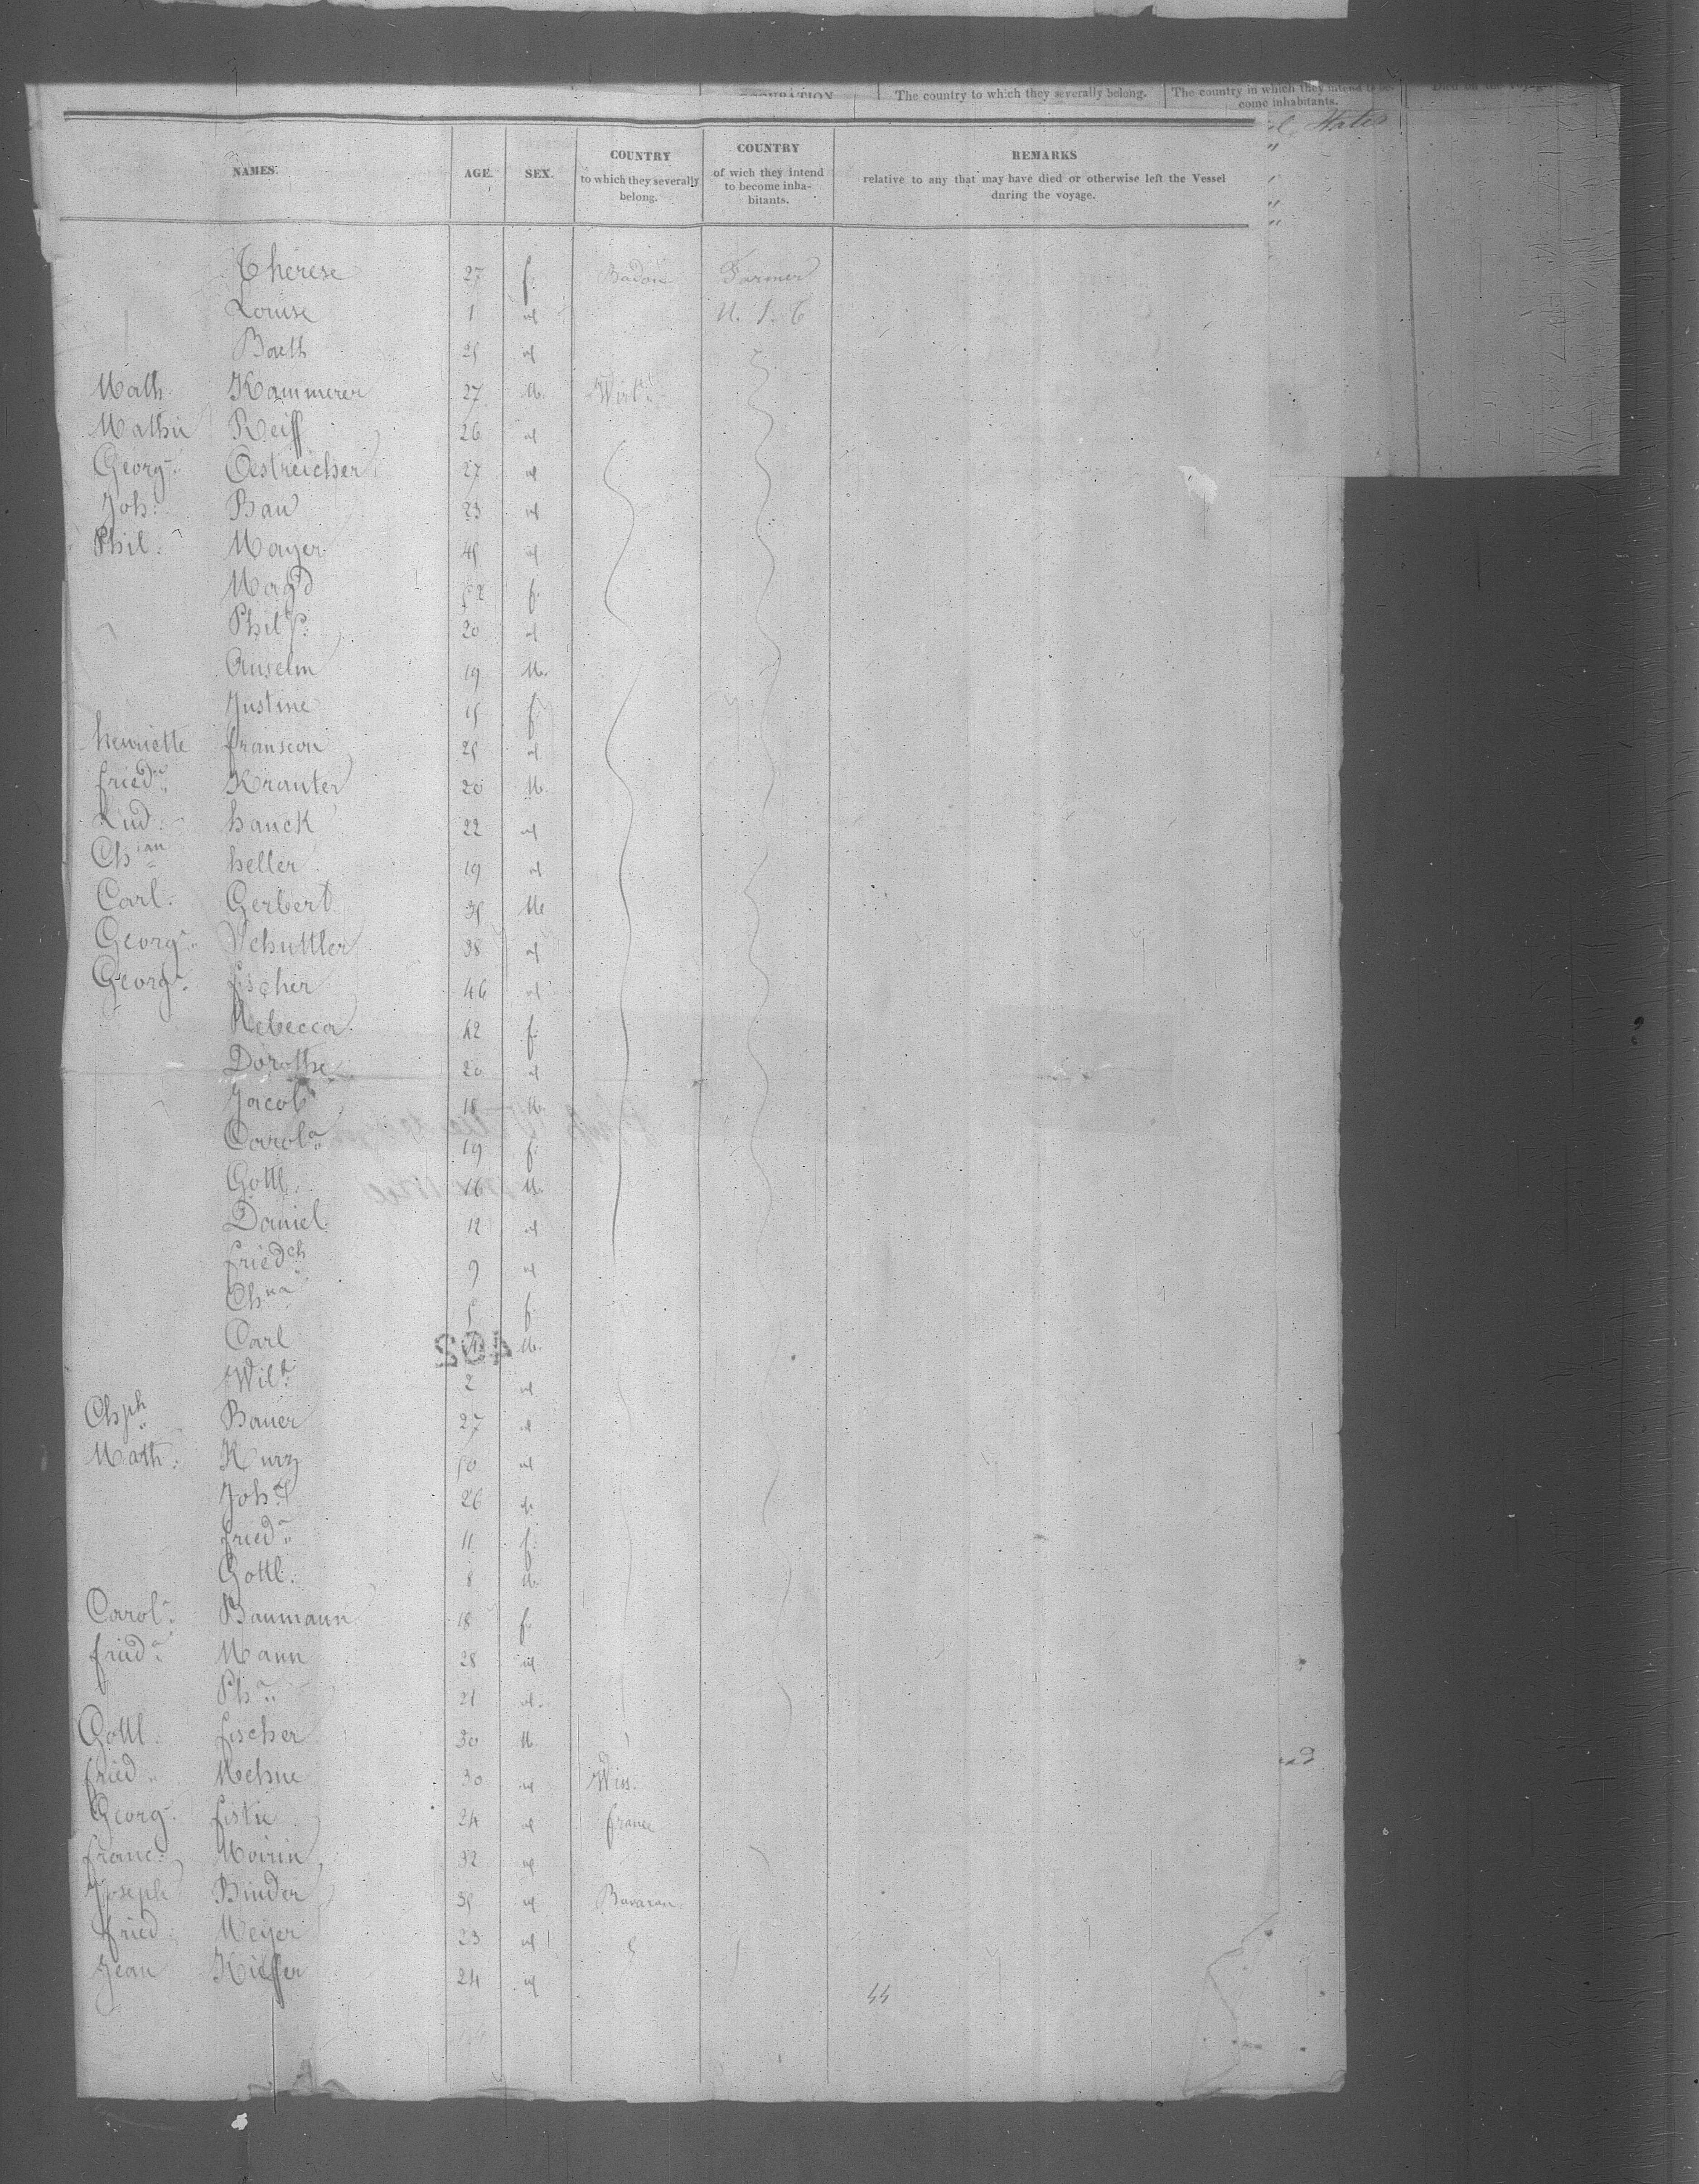 OCCUPATION The country to which they severally belong. The country in which they intend to become inhabitants. Died on the voyage
States
NAMES. AGE. SEX. COUNTRY to which they severally belong. COUNTRY of wich they intend to become inhabitants. REMARKS relative to any that may have died or otherwise left the Vessel during the voyage.
Therese 27 f. Baden Farmer
Louise 1 id U. S. 
Baeth 25 id
Math. Kammerer 27 M. Wirt
Mathis Reiff 26 id
Georg. Oestreicher 27 id
Joh. Bau 23 id
Phil. Mayer 45 id
Magd 52 f.
Phil P. 20 id
Anselm 19 M.
Justine 15 f.
henriette franscon 25 id
fried. Krauter 20 M.
Lud. hauck 22 id
Chian heller 19 id
Carl. Gerbert 35 M
Georg. Schuttler 38 id
Georg. fischer 46 id
Rebecca 42 f.
Dorothe 20 id
Jacob 18 M.
Carola 19 f.
Gottl. 16 M.
Daniel 12 id
friedch 9 id
Chna 5 f.
Carl 4 M.
402
Wilh. 2 id
Chph Bauer 27 id
Math. Kurz 50 id
Joh. 26
fried. 11 f.
Gottl. 8 M.
Carol. Baumann 18 f.
frieda Mann 28 id
Ph. 21 id.
Gottl. fischer 30 M
fried. Mehne 30 id
Georg. fistie 24 id france
franc. Moirin 32 id
Joseph Binder 35 id Bavaran
fried. Meyer 23 id
Jean Kieffer 24 id
44